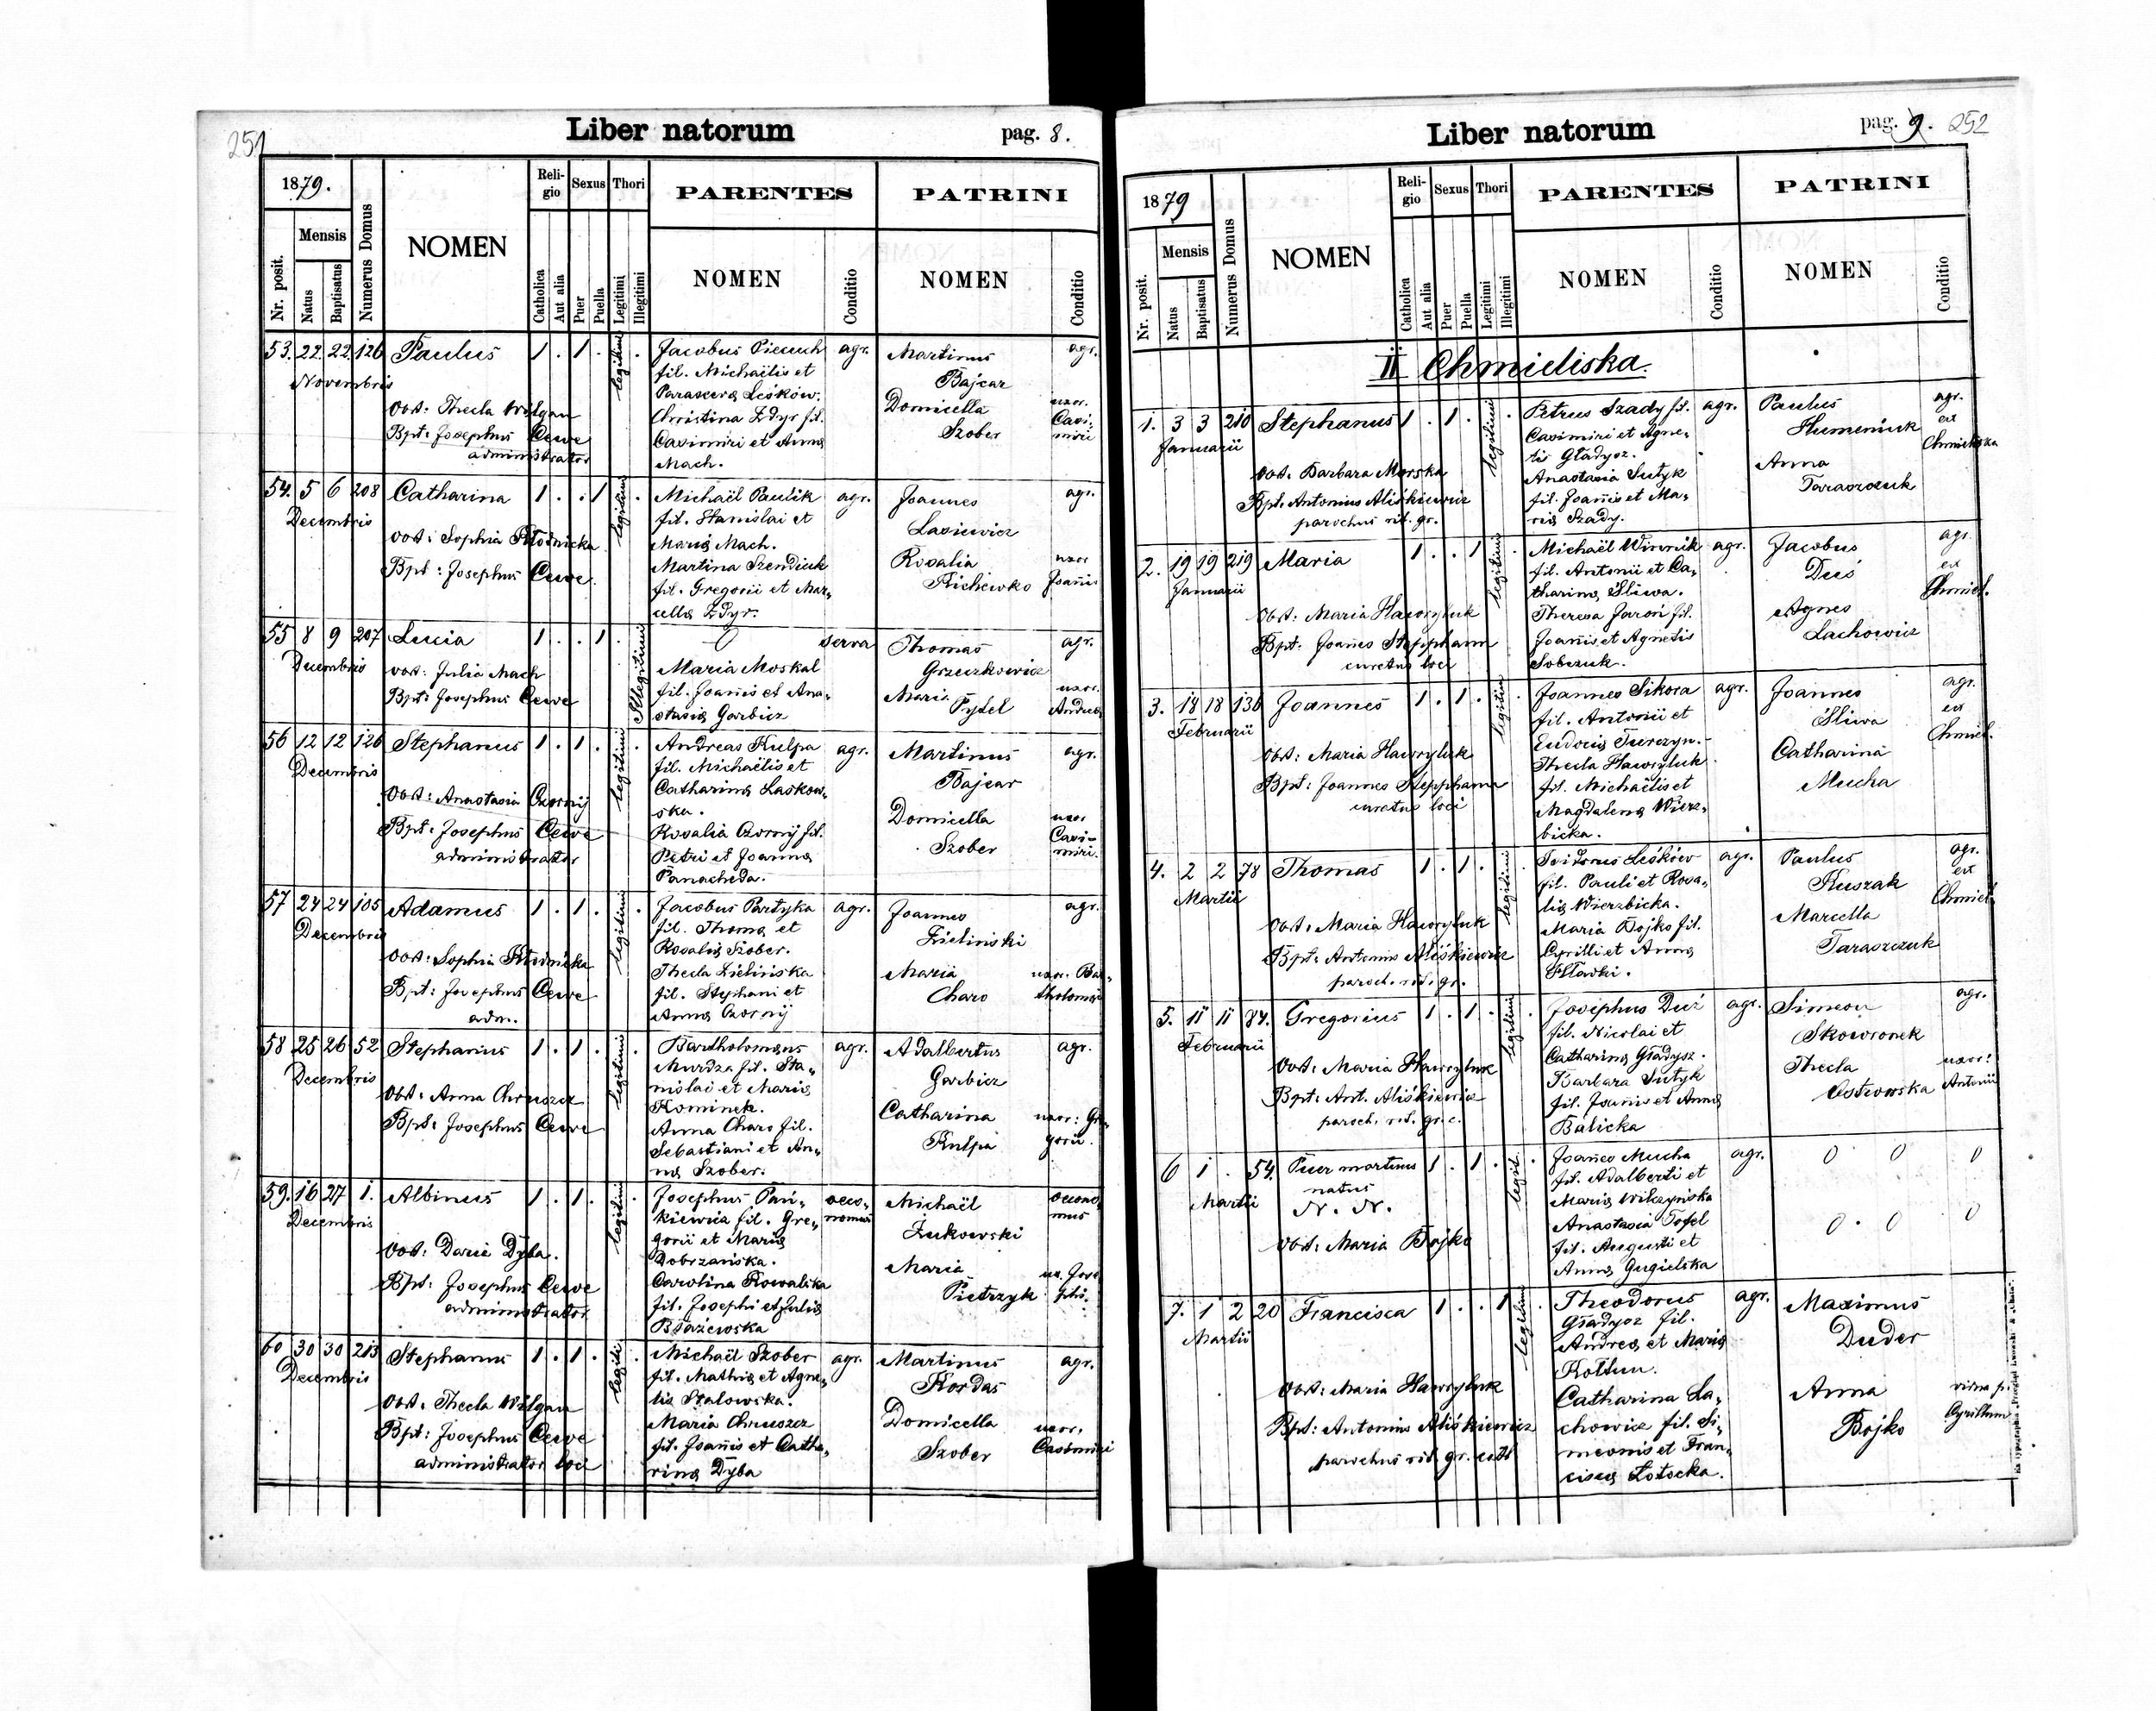 251
Liber natorum
pag. 8.
1879.
Nr. posit.
Mensis
Natus
Baptisatus
Numerus Domus
NOMEN
Religio
Catholica
Aut alia
Sexus
Puer
Puella
Thori
Legitimi
Illegitimi
PARENTES
NOMEN
Conditio
PATRINI
NOMEN
Conditio
53. 22 22 126 Paulus 1 . 1 . legitimi .
Novembris
Obst: Thecla Wilgan
Bpt: Josephus Cewe
administrator
Jacobus Piecuch agr.
fil. Michaëlis et
Parasceva Leśków.
Christina Zdyr fil.
Casimiri et Anna
Mach.
Martinus agr.
Bajcar
Domicella uxor.
Szober Casimiri
54. 5 6 208 Catharina 1 . . 1 legitimi .
Decembris
Obst: Sophia Kłodnicka
Bpt: Josephus Cewe.
Michaël Paulik agr.
fil. Stanislai et
Maria Mach.
Martina Szendiuk
fil. Gregorii et Mar-
cella Zdyr.
Joannes agr.
Lasiewicz
Rosalia uxor
Michewko Joañis
55 8 9 207 Lucia 1 . . 1 . Illegitimi
Decembris
Obst: Julia Mach
Bpt: Josephus Cewe
serva
Maria Moskal
fil. Joañis et Ana-
stasia Garbicz
Thomas agr.
Grzeszkowicz
Maria uxor.
Pytel Andrea
56 12 12 126 Stephanus 1 . 1 . legitimi .
Decembris
Obst: Anastasia Czornij
Bpt: Josephus Cewe
administrator
Andreas Kulpa agr.
fil. Michaëlis et
Catharina Laskow-
ska.
Rosalia Czornij fil.
Petri et Joanna
Panacheda.
Martinus agr.
Bajcar
Domicella uxor
Szober Casimiri.
57 24 24 105 Adamus 1 . 1 . legitimi .
Decembris
Obst: Sophia Kłodnicka
Bpt: Josephus Cewe
adm.
Jacobus Partyka agr.
fil. Thoma et
Rosalia Szober.
Thecla Zielińska
fil. Stephani et
Anna Czornij
Joannes agr.
Zieliński
Maria uxor. Bar-
Charo tholomæi
58 25 26 52 Stephanus 1 . 1 . legitimi .
Decembris
Obst: Anna Chruszcz
Bpt: Josephus Cewe
Bartholomæus agr.
Murdza fil. Sta-
nislai et Maria
Kominek.
Anna Charo fil.
Sebastiani et An-
na Szober.
Adalbertus agr.
Garbicz
Catharina uxor: Gre-
Kulpa gorii.
59. 16 27 1. Albinus 1 . 1 . legitimi .
Decembris
Obst: Daria Dyba.
Bpt: Josephus Cewe
administrator
Josephus Pań- oeco-
kiewicz fil. Gre- nomus
gorii et Maria
Dobrzańska.
Carolina Kowalska
fil. Josephi et Julia
Błażewska
Michaël oecono-
Żukowski mus
Maria ux. Jose-
Pietrzyk phi.
60 30 30 213 Stephanus 1 . 1 . legiti .
Decembris
Obst. Thecla Wilgan
Bpt: Josephus Cewe
administrator loci
Michaël Szober agr.
fil. Mathia et Agne-
tis Stalowska.
Maria Chruszcz
fil. Joañis et Catha-
rina Dyba
Martinus agr.
Kordas
Domicella uxor.
Szober Casimiri
Liber natorum
pag. 9. 252
1879
Nr. posit.
Mensis
Natus
Baptisatus
Numerus Domus
NOMEN
Religio
Catholica
Aut alia
Sexus
Puer
Puella
Thori
Legitimi
Illegitimi
PARENTES
NOMEN
Conditio
PATRINI
NOMEN
Conditio
II Chmieliska.
1. 3 3 210 Stephanus 1 . 1 . legitimi .
Januarii
Obst. Barbara Morska
Bpt. Antonius Aliśkiewicz
parochus rit. gr.
Petrus Szady fil. agr.
Casimiri et Agne-
tis Gładysz.
Anastasia Sutyk
fil. Joañis et Ma-
ria Szady.
Paulus agr.
Humeniuk ex
Chmieliska
Anna
Taraszczuk
2. 19 19 219 Maria 1 . . 1 legitimi .
Januarii
Obst: Maria Hawryluk
Bpt: Joañes Stepphann
curatus loci
Michaël Winnik agr.
fil. Antonii et Ca-
tharina Śliwa.
Theresa Jaroń fil.
Joañis et Agnetis
Sobczuk.
Jacobus agr.
Duś ex
Chmiel.
Agnes
Lachowicz
3. 18 18 136 Joannes 1 . 1 . legitim .
Februarii
Obst: Maria Hawryluk
Bpt: Joannes Stepphann
curatus loci
Joannes Sikora agr.
fil. Antonii et
Eudocia Turczyn.
Thecla Hawryluk
fil. Michaëlis et
Magdalena Wierz-
bicka.
Joannes agr.
Śliwa ex
Chmiel.
Catharina
Mucha
4. 2 2 78 Thomas 1 . 1 . legitimi .
Martii
Obst. Maria Hawryluk
Bpt: Antonius Aliśkiewicz
paroch. rit. gr.
Isidorus Leśków agr.
fil. Pauli et Rosa-
lia Wierzbicka.
Maria Bojko fil.
Cyrilli et Anna
Hławki.
Paulus agr.
Kuszak ex
Chmiel.
Marcella
Taraszczuk
5. 11 11 84. Gregorius 1 . 1 . legitimi .
Februarii
Obst: Maria Hawryluk
Bpt: Ant. Aliśkiewicz
paroch. rit. gr. c.
Josephus Duż agr.
fil. Nicolai et
Catharina Gładysz.
Barbara Sutyk
fil. Joañis et Anna
Balicka
Simeon agr.
Skowronek
Thecla uxor:
Ostrowska Antonii
6 1 . 54. Puer mortuus 1 . 1 . legit. .
Martii natus
N. N.
Obst: Maria Bojko
Joañes Mucha agr.
fil. Adalberti et
Maria Wilczyńska
Anastasia Tofel
fil. Augusti et
Anna Gugielska
0 0 0
0 . 0 0
7. 1 2 20 Francisca 1 . . 1 legitimi .
Martii
Obst: Maria Hawryluk
Bpt: Antonius Aliśkiewicz
parochus rit. gr. cath
Theodorus agr.
Gładysz fil.
Andrea et Maria
Kołtun.
Catharina La-
chowicz fil. Si-
meonis et Fran-
cisca Łotocka.
Maximus
Duder
Anna vidua p.
Bojko Cyrillum